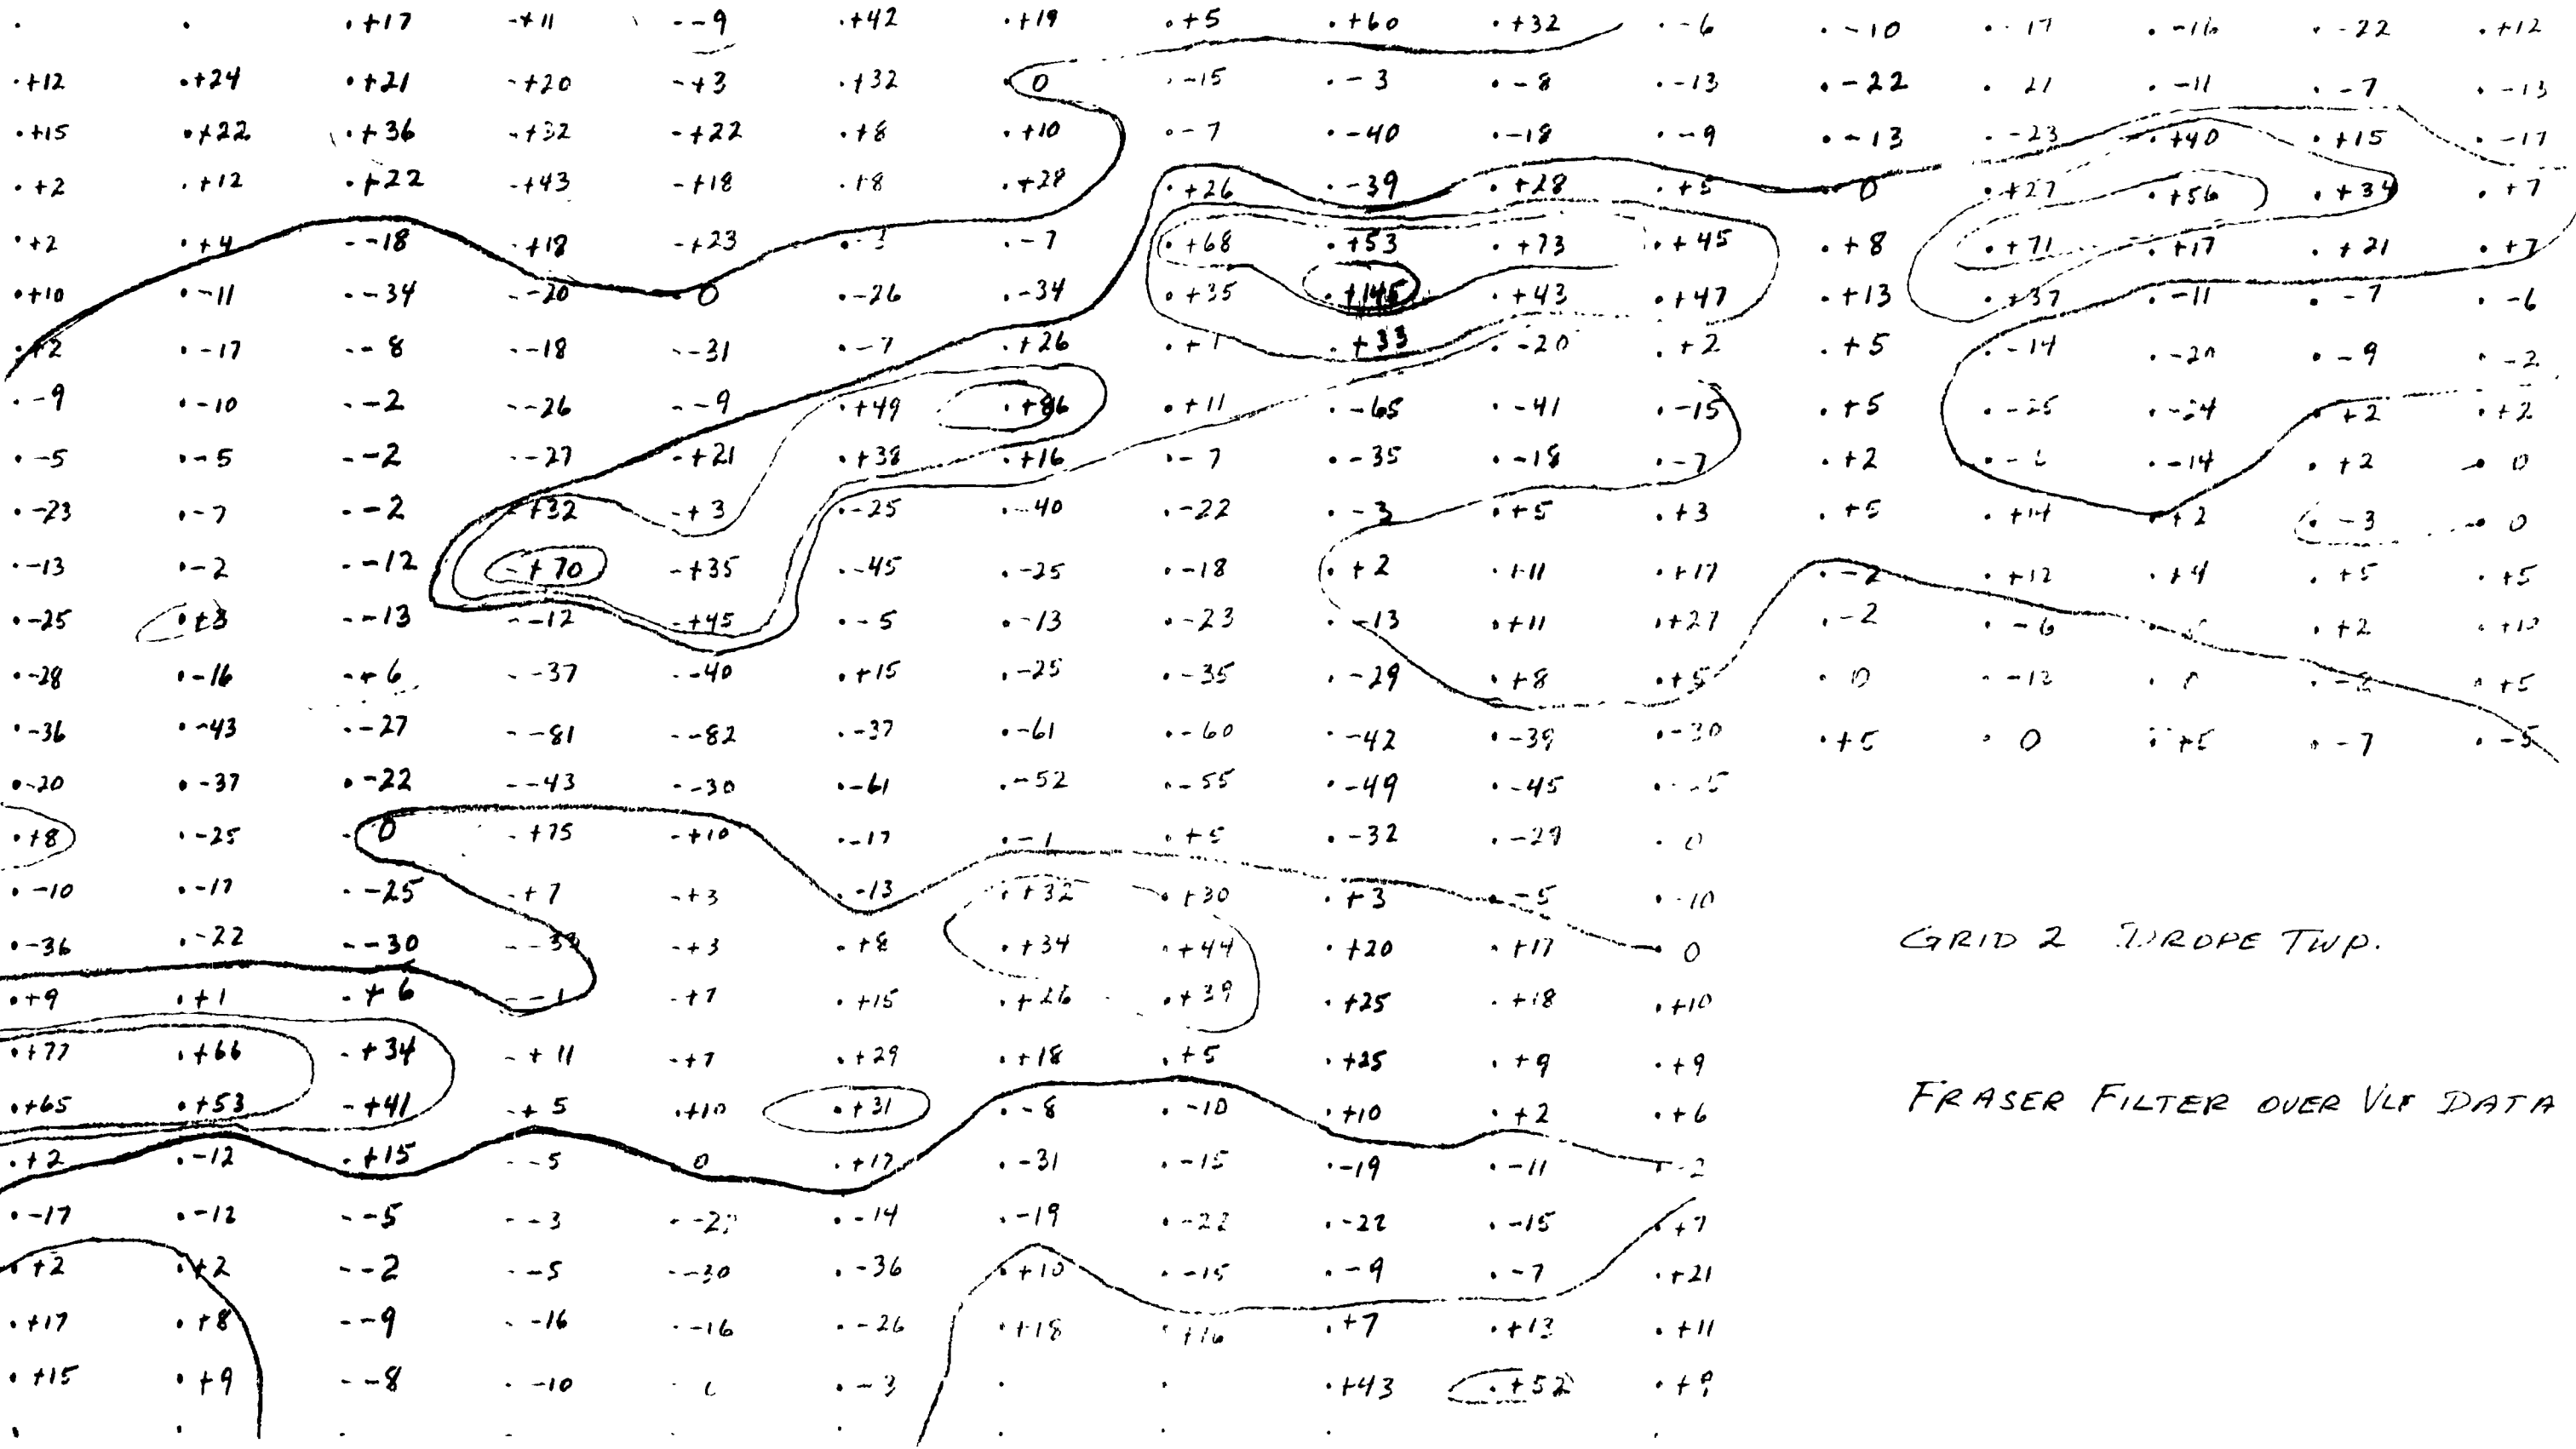 +17 +11 -9 +42 +19 +5 +60 +32 -6 -10 17 -16 -22 +12
+12 +24 +21 +20 +3 +32 0 -15 -3 -8 -13 -22 21 -11 -7 -13
+15 +22 +36 +32 +22 +8 +10 -7 -40 -18 -9 -13 -23 +40 +15 -17
+2 +12 +22 +43 +18 +8 +28 +26 -39 +28 +5 0 +27 +56 +34 +7
+2 +4 -18 +18 +23 -7 +68 +53 +73 +45 +8 +71 +17 +21 +7
+10 -11 -34 -20 0 -26 -34 +35 +145 +43 +47 +13 +37 -11 -7 -6
+2 -17 -8 -18 -31 -7 +26 +1 +33 -20 +2 +5 -14 -20 -9 -2
-9 -10 -2 -26 -9 +49 +86 +11 -65 -41 -15 +5 -25 -24 +2 +2
-5 -5 -2 -27 +21 +38 +16 -7 -35 -18 -7 +2 -14 +2 0
-23 -7 -2 +32 +3 -25 -40 -22 -3 +5 +3 +5 +14 +2 -3 0
-13 -2 -12 +70 +35 -45 -25 -18 +2 +11 +17 -2 +12 +4 +5 +5
-25 +3 -13 -12 +45 -5 -13 -23 -13 +11 +27 -2 -6 +2 +10
-28 -16 +6 -37 -40 +15 -25 -35 -29 +8 +5 0 -12 -2 +5
-36 -43 -27 -81 -82 -37 -61 -60 -42 -39 -30 +5 0 +5 -7 -5
-20 -37 -22 -43 -30 -61 -52 -55 -49 -45
+8 -25 0 +75 +10 -17 -1 +5 -32 -29 0
-10 -17 -25 +7 +3 -13 +32 +30 +3 -5 -10
-36 -22 -30 -33 +3 +8 +34 +44 +20 +17 0
GRID 2 DROPE TWP.
+9 +1 +6 -1 +7 +15 +26 +39 +25 +18 +10
+77 +66 +34 +11 +7 +29 +18 +5 +25 +9 +9
+65 +53 +41 +5 +10 +31 -8 -10 +10 +2 +6
FRASER FILTER OVER VLF DATA
+2 -12 +15 -5 0 +17 -31 -15 -19 -11 -2
-17 -12 -5 -3 -14 -19 -22 -22 -15 +7
+2 +2 -2 -5 -30 -36 +10 -15 -9 -7 +21
+17 +8 -9 -16 -16 -26 +18 +16 +7 +13 +11
+15 +9 -8 -10 -3 +43 +52 +9